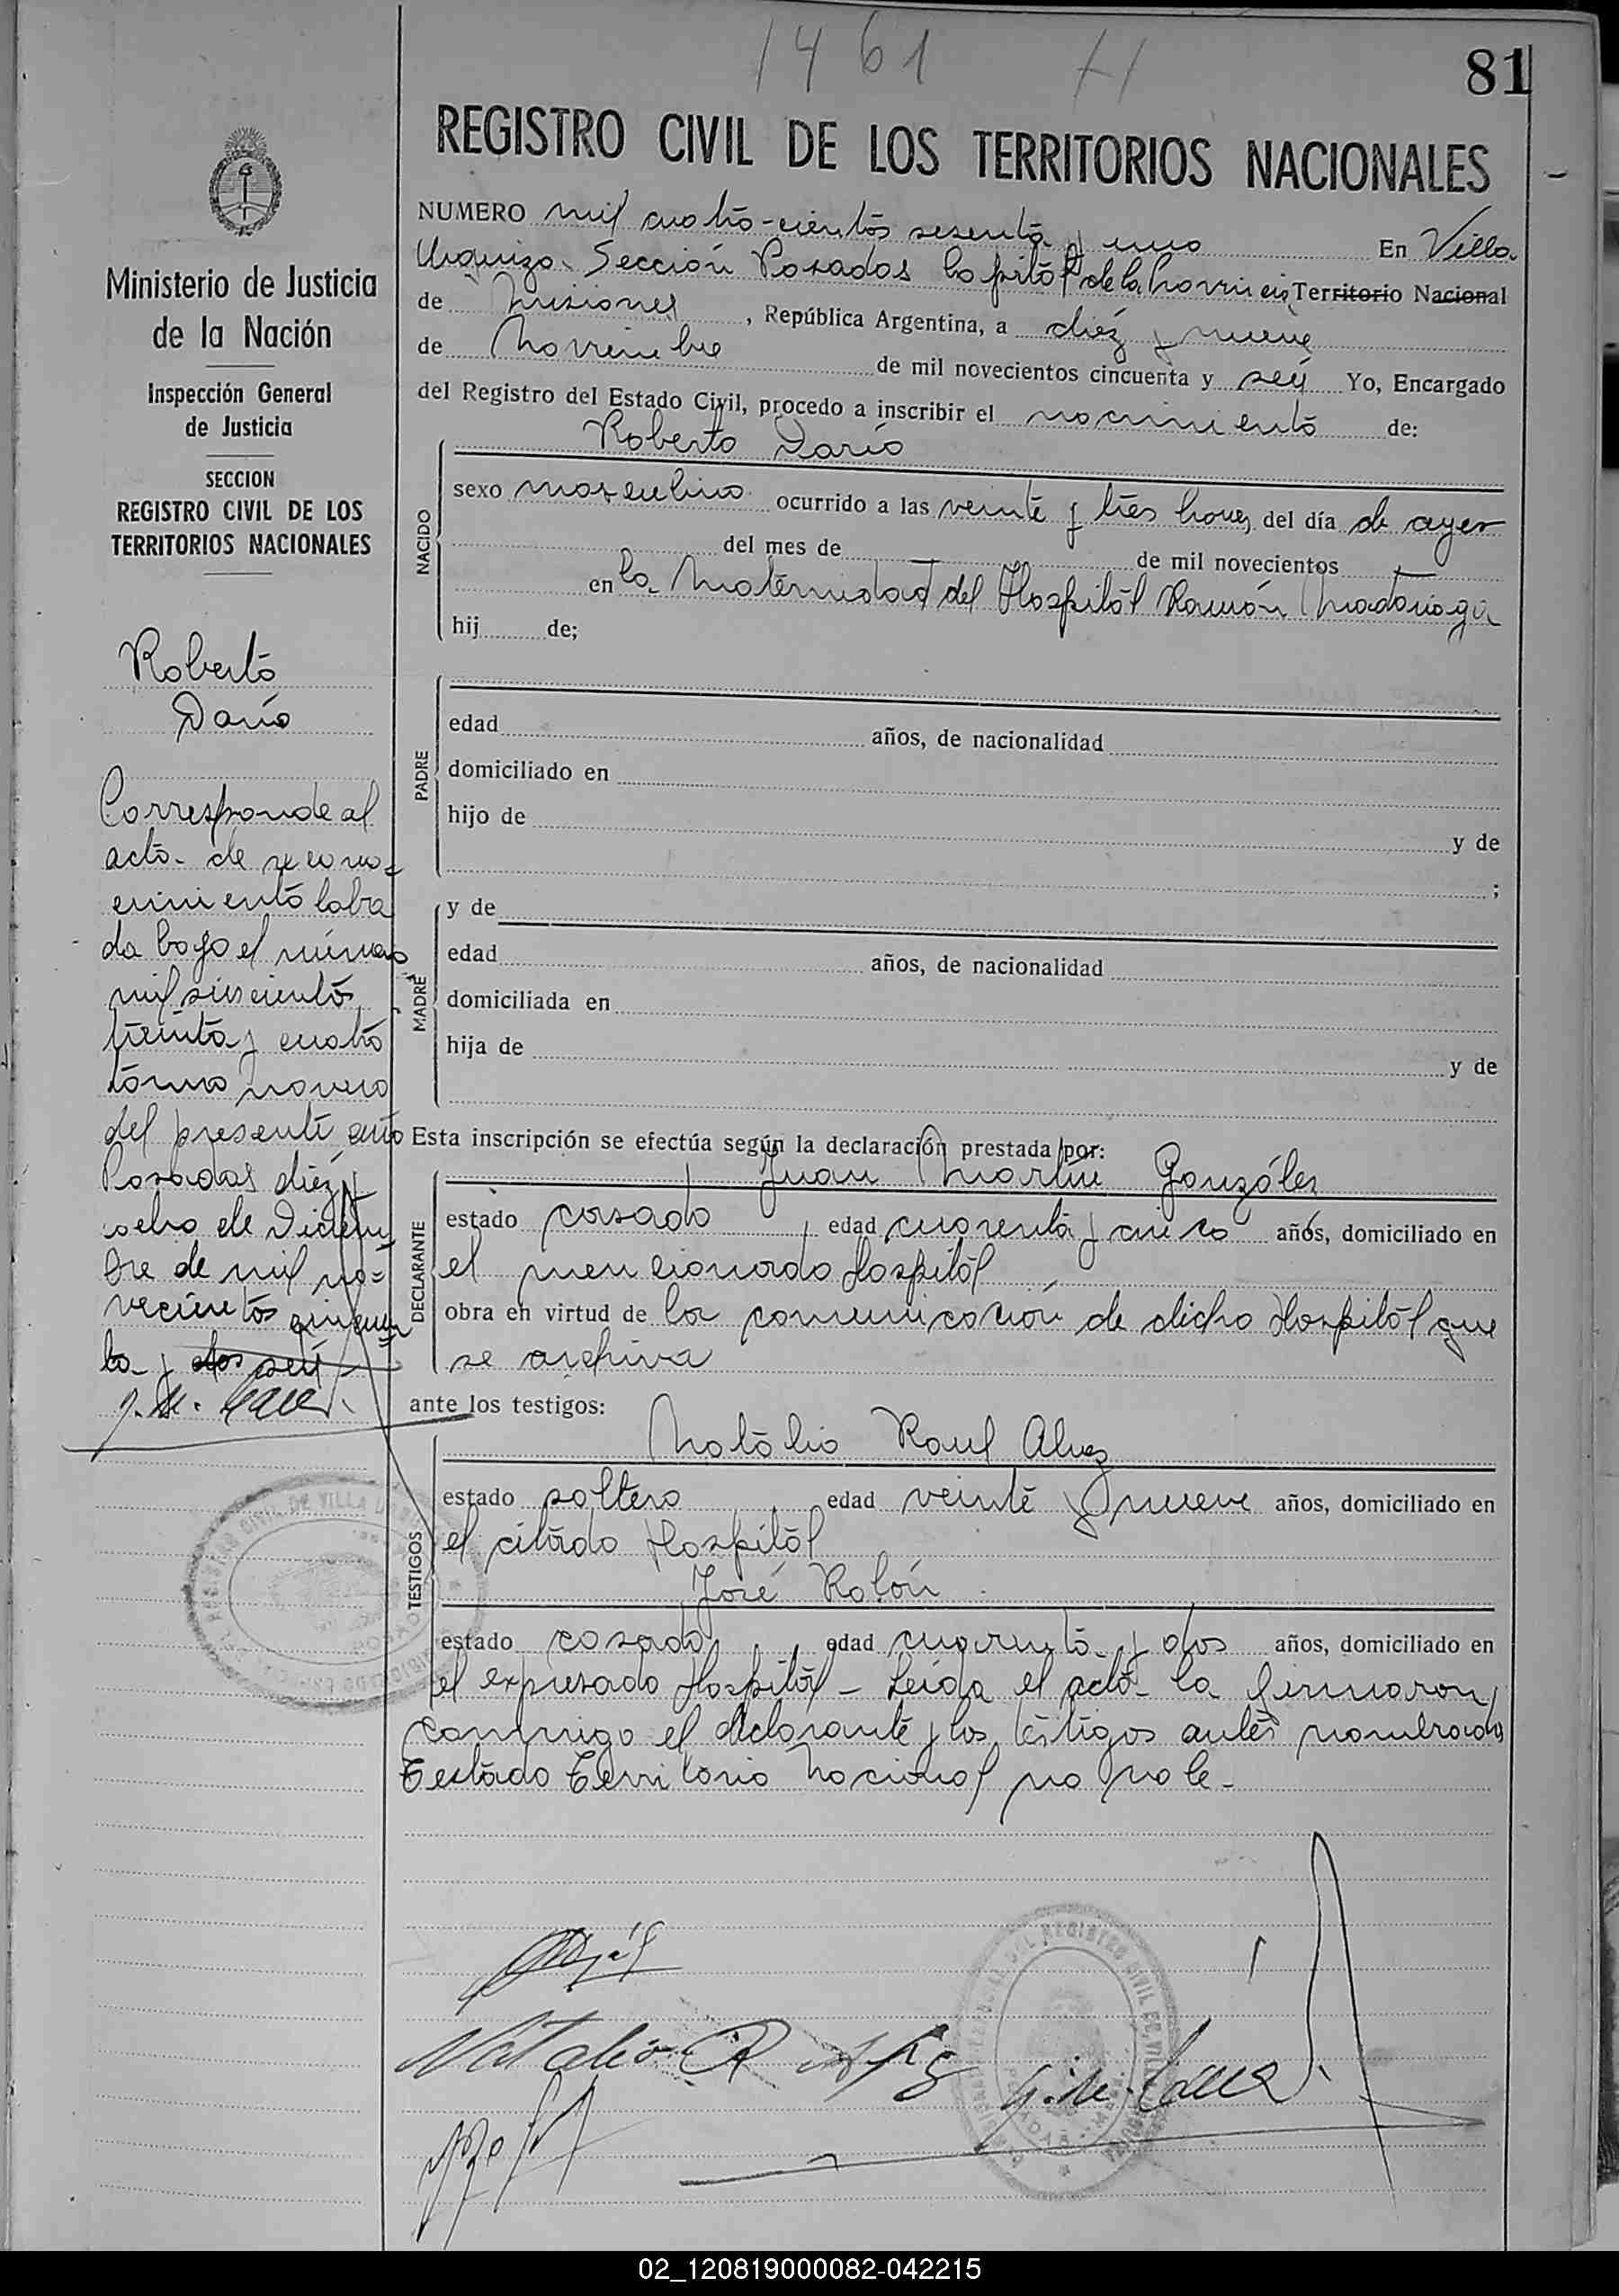 1461
81
REGISTRO CIVIL DE LOS TERRITORIOS NACIONALES
Ministerio de Justicia
de la Nación
Inspección General
de Justicia
SECCION
REGISTRO CIVIL DE LOS
TERRITORIOS NACIONALES
Roberto
Darío
Corresponde al
acta de recono=
cimiento labra
da bajo el número
mil seiscientos
treinta y cuatro
tomo noveno
del presente año
Posadas diez y
ocho de Diciem
bre de mil no=
vecientos cincuen
ta y dos seis
NUMERO mil cuatro-cientos sesenta y uno En Villa
Urquiza Sección Posadas Capital de la Provincia Territorio Nacional
de Misiones, República Argentina, a diez y nueve
de Noviembre de mil novecientos cincuenta y seis Yo, Encargado
del Registro del Estado Civil, procedo a inscribir el nacimiento de:
Roberto Darío
NACIDO
sexo masculino ocurrido a las veinte y tres horas del día de ayer
del mes de de mil novecientos
en la Maternidad del Hospital Ramón Madariaga
hij de;
PADRE
edad años, de nacionalidad
domiciliado en
hijo de y de
;
MADRE
y de
edad años, de nacionalidad
domiciliada en
hija de y de
Esta inscripción se efectúa según la declaración prestada por:
DECLARANTE
Juan Martín González
estado casado, edad cuarenta y cinco años, domiciliado en
el mencionado Hospital
obra en virtud de la comunicación de dicho Hospital que
se archiva
ante los testigos:
TESTIGOS
Natalio Raul Alvez
estado soltero edad veinte y nueve años, domiciliado en
el citado Hospital
José Rolón
estado casado, edad cuarenta y dos años, domiciliado en
el expresado Hospital - Leída el acta la firmaron
conmigo el declarante y los testigos antes nombrados
Testado Territorio Nacional no vale-
Natalio R
02_120819000082-042215